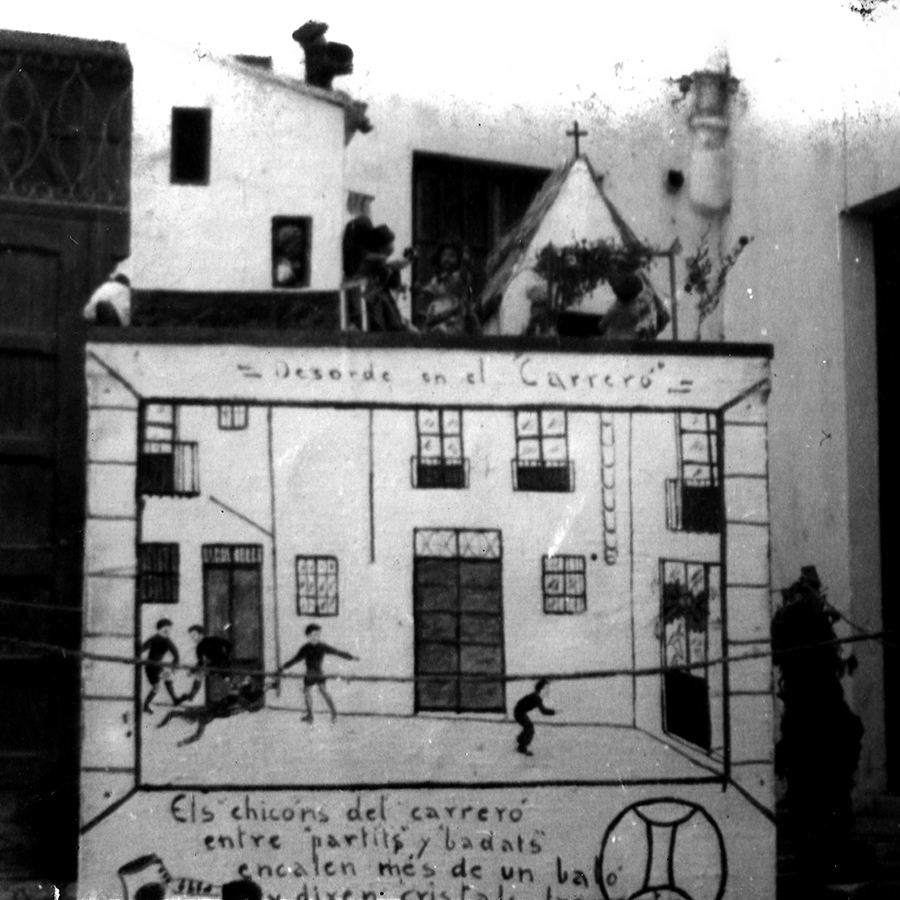 = Desorde en el "Carreró" =
Els chicóns del carreró
entre "partits" y "badats"
encalen més de un baló
y dixen cristals